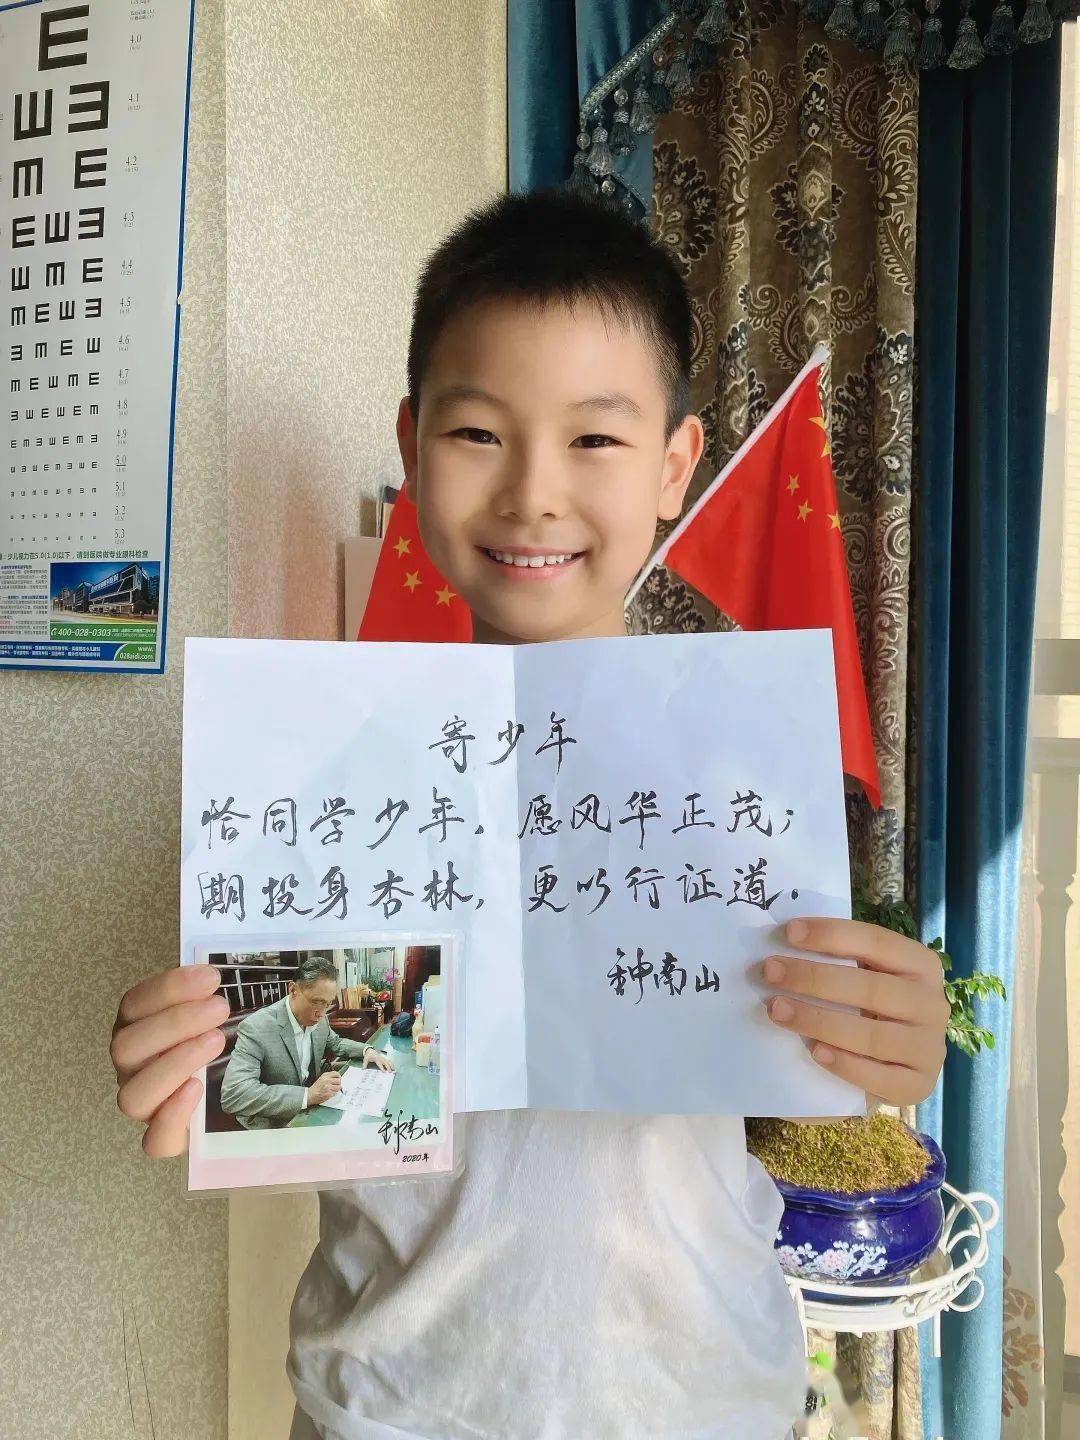 4.0
4.1
4.2
4.3
4.4
4.5
4.6
4.7
4.8
4.9
5.0
5.1
5.2
5.3
少儿视力在5.0(1.0)以下，请到医院做专业眼科检查
400-028-0303
www.
028aidi.com
寄少年
恰同学少年，愿风华正茂；
期投身杏林，更以行证道。
钟南山
钟南山
2020年